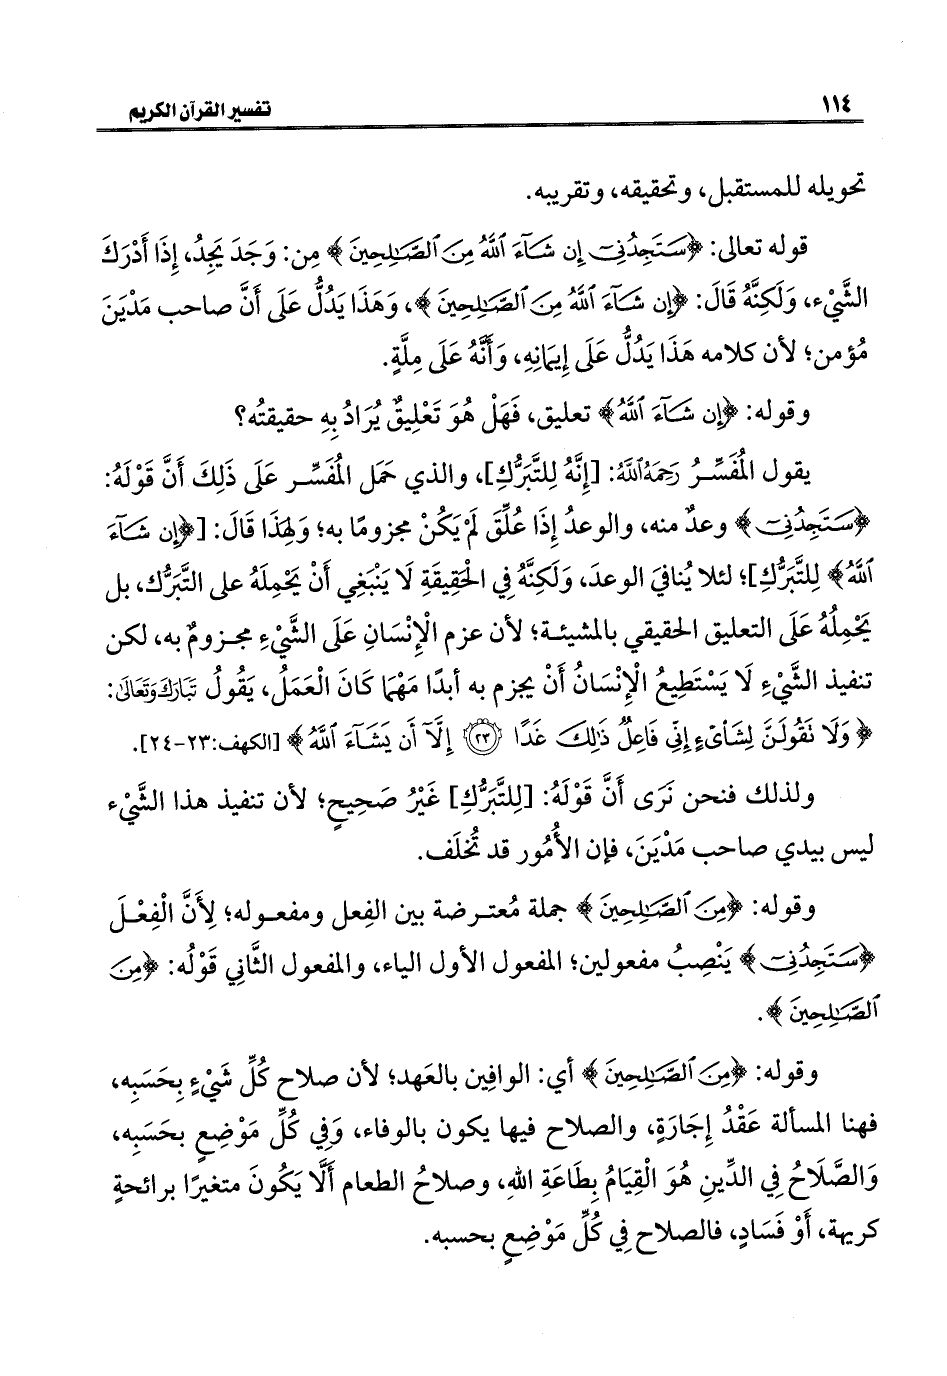 ١١٤
تفسير القرآن الكريم
تحويله للمستقبل، وتحقيقه، وتقريبه.
قوله تعالى: ﴿سَتَجِدُنِىٓ إِن شَآءَ ٱللَّهُ مِنَ ٱلصَّٰلِحِينَ﴾ مِن: وَجَدَ يَجِدُ، إِذَا أَدْرَكَ
الشَّيْء، وَلَكِنَّهُ قَالَ: ﴿إِن شَآءَ ٱللَّهُ مِنَ ٱلصَّٰلِحِينَ﴾، وَهَذَا يَدُلُّ عَلَى أَنَّ صاحب مَدْيَنَ
مُؤمن؛ لأن كلامه هَذَا يَدُلُّ عَلَى إِيمَانِهِ، وَأَنَّهُ عَلَى مِلَّةٍ.
وقوله: ﴿إِن شَآءَ ٱللَّهُ﴾ تعليق، فَهَلْ هُوَ تَعْلِيقٌ يُرَادُ بِهِ حقيقتُه؟
يقول المُفَسِّرُ رَحِمَهُ اللَّهُ: [إِنَّهُ لِلتَّبَرُّكِ]، والذي حَمَل المُفَسِّر عَلَى ذَلِكَ أَنَّ قَوْلَهُ:
﴿سَتَجِدُنِىٓ﴾ وعدٌ منه، والوعدُ إِذَا عُلِّقَ لَمْ يَكُنْ مجزومًا به؛ وَلِهَذَا قَالَ: [﴿إِن شَآءَ
ٱللَّهُ﴾ لِلتَّبَرُّكِ]؛ لئلا يُنافيَ الوعدَ، وَلَكِنَّهُ فِي الْحَقِيقَةِ لَا يَنْبَغِي أَنْ يَحْمِلَهُ على التَّبَرُّك، بل
يَحْمِلُهُ عَلَى التعليق الحقيقي بالمشيئة؛ لأن عزم الْإِنْسَانِ عَلَى الشَّيْءِ مجزومٌ به، لكن
تنفيذ الشَّيْءِ لَا يَسْتَطِيعُ الْإِنْسَانُ أَنْ يجزم به أبدًا مَهْمَا كَانَ الْعَمَلُ، يَقُولُ تَبَارَكَ وَتَعَالَى:
﴿وَلَا تَقُولَنَّ لِشَا۟ىْءٍ إِنِّى فَاعِلٌ ذَٰلِكَ غَدًا ۝٢٣ إِلَّآ أَن يَشَآءَ ٱللَّهُ﴾ [الكهف:٢٣-٢٤].
ولذلك فنحن نَرَى أَنَّ قَوْلَهُ: [لِلتَّبَرُّكِ] غَيْرُ صَحِيحٍ؛ لأن تنفيذ هذا الشَّيْء
ليس بيدي صاحب مَدْيَنَ، فإن الأُمُور قد تُخلَف.
وقوله: ﴿مِنَ ٱلصَّٰلِحِينَ﴾ جملة مُعترضة بين الفِعل ومفعوله؛ لِأَنَّ الْفِعْلَ
﴿سَتَجِدُنِىٓ﴾ يَنْصِبُ مفعولين؛ المفعول الأول الياء، والمفعول الثَّانِي قَوْلُه: ﴿مِنَ
ٱلصَّٰلِحِينَ﴾.
وقوله: ﴿مِنَ ٱلصَّٰلِحِينَ﴾ أي: الوافِين بالعَهد؛ لأن صلاح كُلِّ شَيْءٍ بِحَسَبِه،
فهنا المسألة عَقْدُ إِجَارَةٍ، والصلاح فيها يكون بالوفاء، وَفِي كُلِّ مَوْضِعٍ بحَسَبِه،
وَالصَّلَاحُ فِي الدِّينِ هُوَ الْقِيَامُ بِطَاعَةِ اللهِ، وصلاحُ الطعام أَلَّا يَكُونَ متغيرًا برائحةٍ
كريهة، أَوْ فَسَادٍ، فالصلاح فِي كُلِّ مَوْضِعٍ بحسبه.